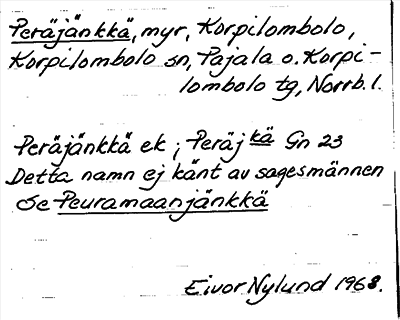 Peräjänkkä, myr, Korpilombolo,
Korpilombolo sn, Pajala o. Korpi-
lombolo tg, Norrb. l.
Peräjänkkä ek; Peräjkä Gn 23
Detta namn ej känt av sagesmännen
Se Peuramaanjänkkä
Eivor Nylund 1968.